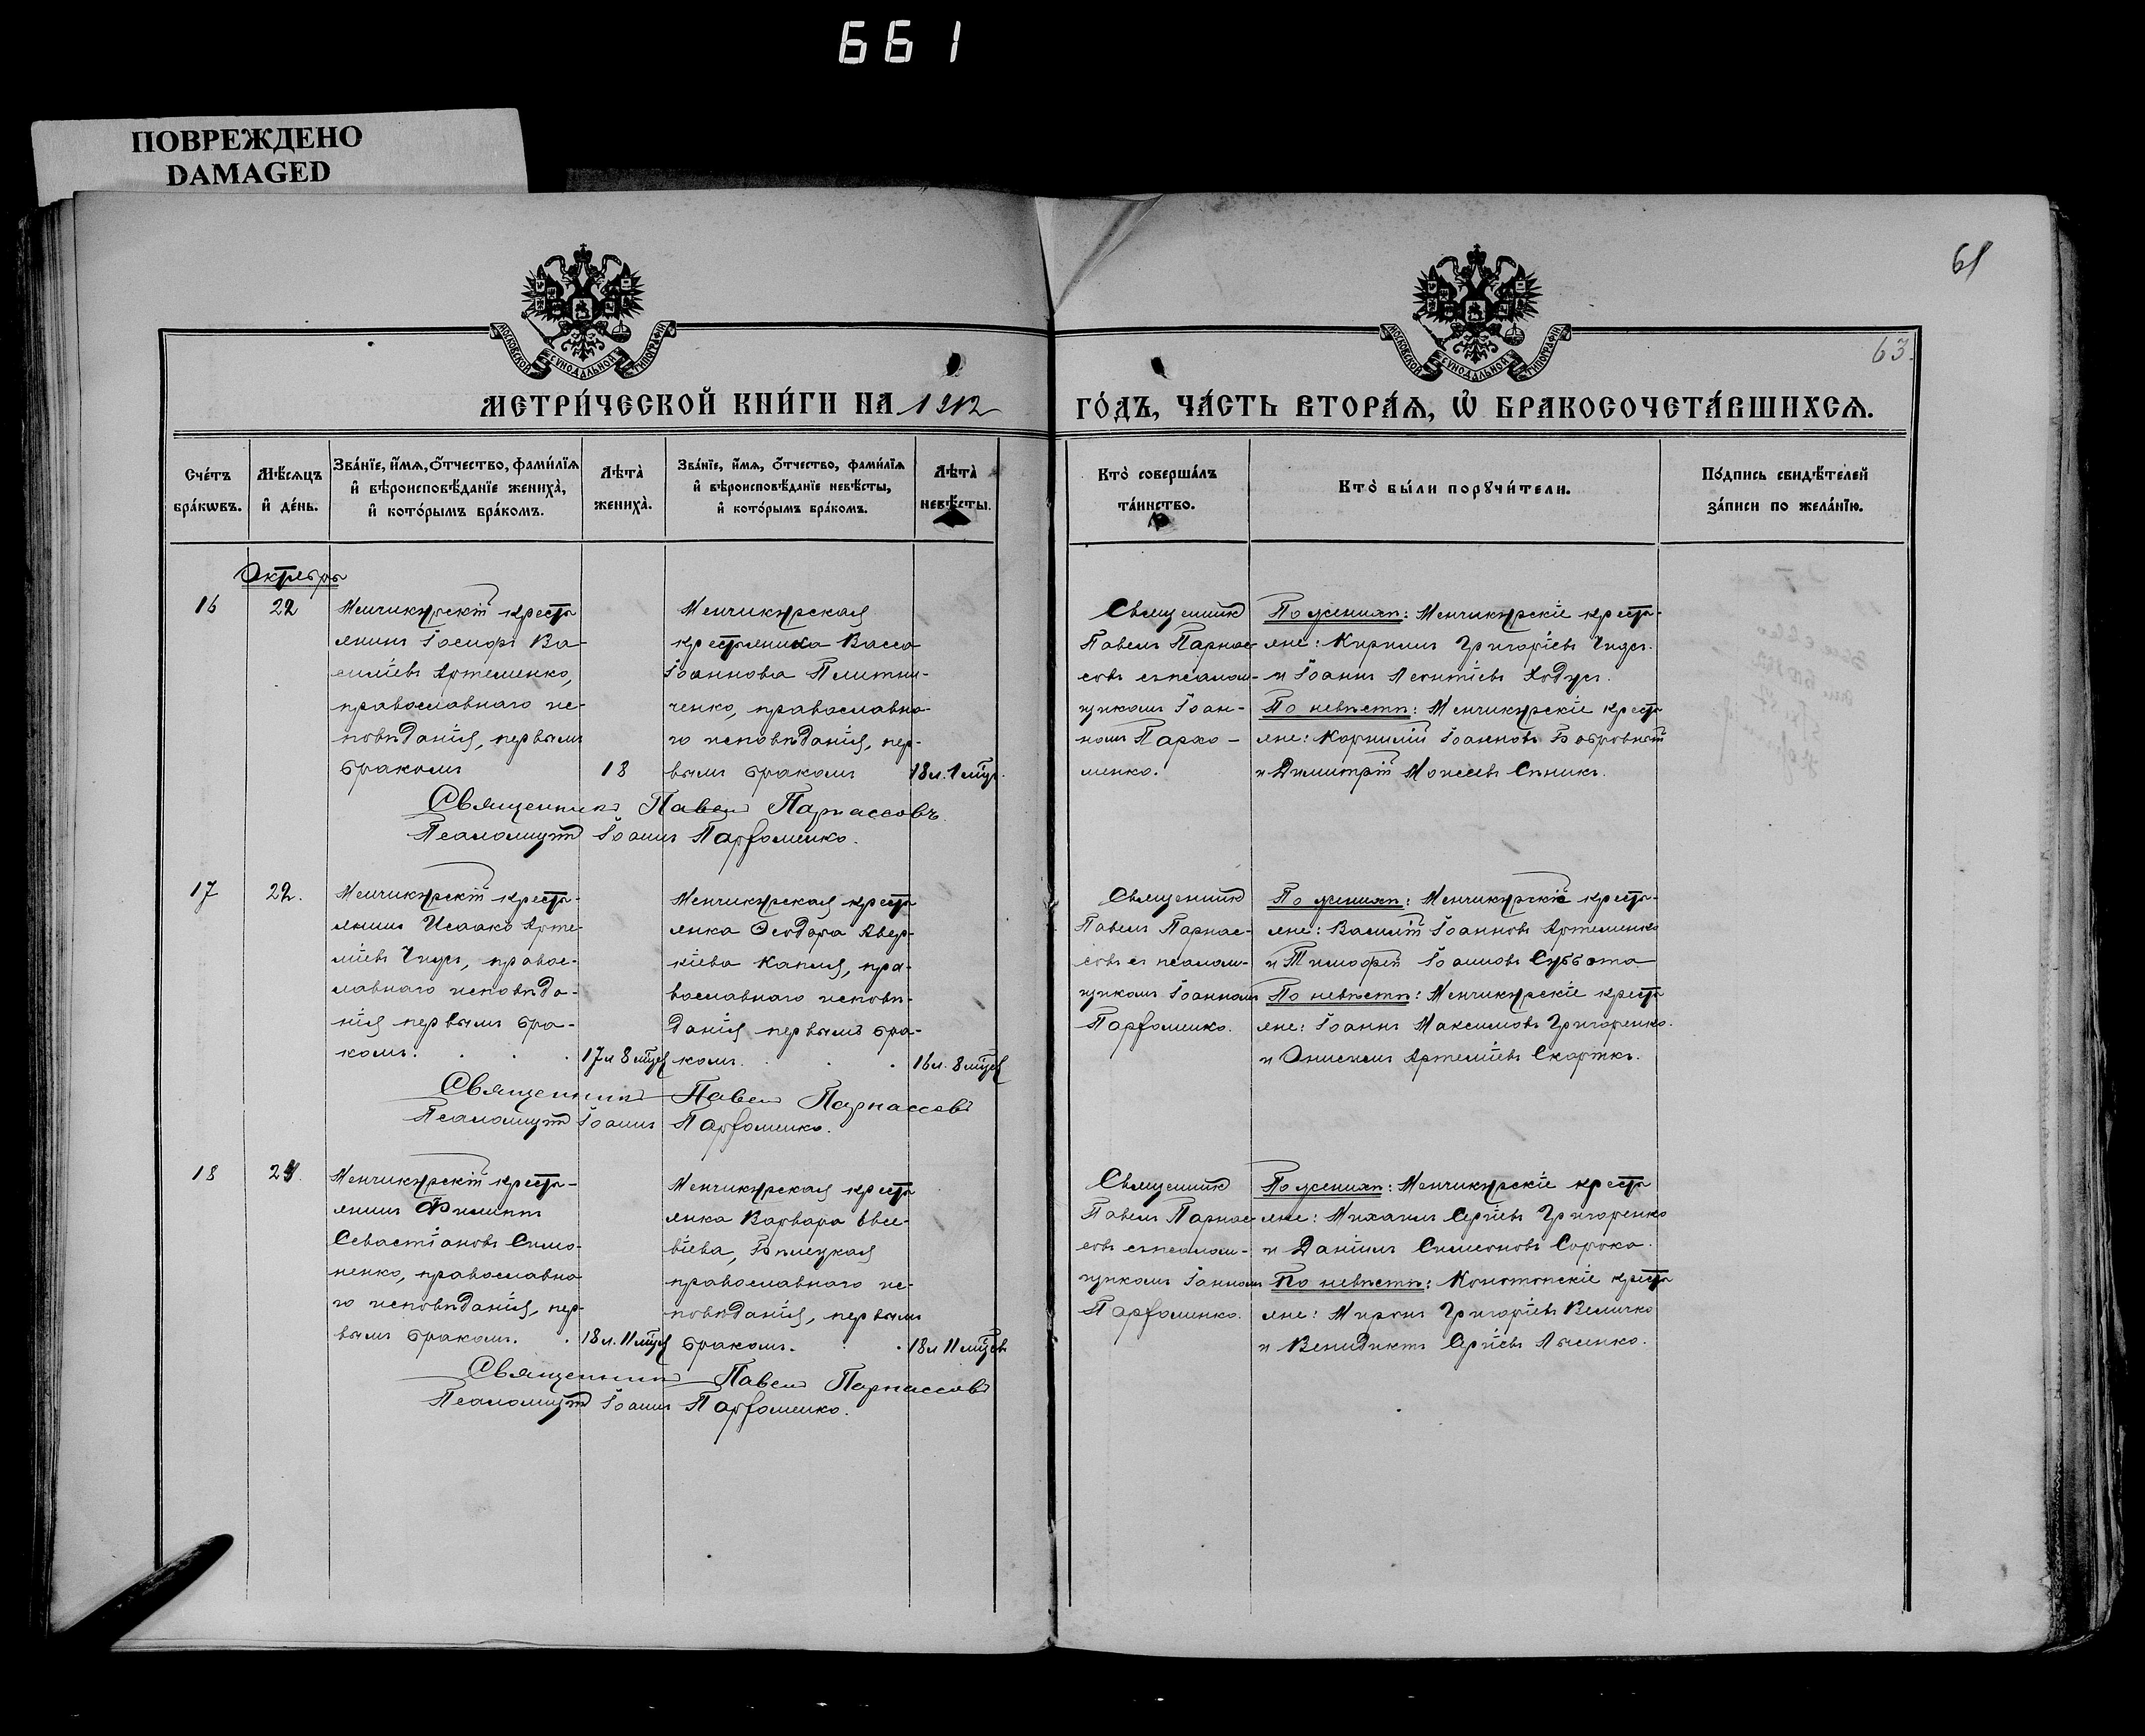 661
ПОВРЕЖДЕНО
DAMAGED
61
63.
МОСКОВСКОЙ СУНОДАЛЬНОЙ ТИПОГРАФІИ
МОСКОВСКОЙ СУНОДАЛЬНОЙ ТИПОГРАФІИ
МЕТРИ́ЧЕСКОЙ КНИ́ГИ НА 1912
ГО́ДЪ, ЧА́СТЬ ВТОРА́Ѧ, Ѡ БРАКОСОЧЕТА́ВШИХСѦ.
Сче́тъ
бра́кѡвъ.
Мѣ́сѧцъ
и҆ де́нь.
Зва́нїе, и҆́мѧ, ѻ҆́тчество, фами́лїѧ
и҆ вѣроисповѣ́данїе жениха̀,
и҆ кото́рымъ бра́комъ.
Лѣта̀
жениха̀.
Зва́нїе, и҆́мѧ, ѻ҆́тчество, фами́лїѧ
и҆ вѣроисповѣ́данїе невѣ́сты,
и҆ кото́рымъ бра́комъ.
Лѣта̀
невѣ́сты.
Кто̀ соверша́лъ
та́инство.
Кто̀ бы́ли порꙋчи́тели.
По́дпись свидѣ́телей
за́писи по жела́нїю.
Октябрь
16
22
Менчикурскій кресть
янинъ Іосифъ Ва-
силіевъ Артеменко,
православнаго ис-
повѣданія, первымъ
бракомъ
18
Менчикурская
крестьянка Васса
Іоаннова Плитни-
ченко, православна-
го исповѣданія, пер-
вымъ бракомъ
18 л. 1 мѣц.
Священникъ
Павелъ Парнас-
совъ съ псалом-
щикомъ Іоан-
номъ Пархо-
менко.
По женихѣ: Менчикурскіе кресть-
яне: Кириллъ Григоріевъ Чидъ
и Іоаннъ Леонтіевъ Ходусъ.
По невѣстѣ: Менчикурскіе кресть
яне: Корнилій Іоанновъ Бобровный
и Димитрій Моисеевъ Сѣникъ.
Священникъ Павелъ Парнассовъ.
Псаломщикъ Іоаннъ Парѳоменко.
17
22.
Менчикурскій кресть-
янинъ Исаакъ Арте-
міевъ Чидъ, правос-
лавнаго исповѣда-
нія первымъ бра-
комъ.
17 л 8 мѣцев
Менчикурская кресть
янка Ѳеодора Авер-
кіева Капля, пра-
вославнаго исповѣ-
данія первымъ бра-
комъ.
16 л. 8 мѣцев
Священникъ
Павелъ Парнас-
совъ съ псалом-
щикомъ Іоанномъ
Парѳоменко.
По женихѣ: Менчикурскіе кресть-
яне: Василій Іоанновъ Артеменко
и Тимофей Іоанновъ Суббота
По невѣстѣ: Менчикурскіе кресть
яне: Іоаннъ Максимовъ Григоренко.
и Онисимъ Артеміевъ Скортъ.
Священникъ Павелъ Парнассовъ
Псаломщикъ Іоаннъ Парѳоменко.
18
Менчикурскій кресть-
янинъ Филиппъ
Севастіановъ Симо-
ненко, православна
го исповѣданія, пер-
вымъ бракомъ.
18 л. 11 мѣцев
Менчикурская кресть
янка Варвара Евсе-
віева, Бѣлецкая
православнаго ис-
повѣданія, первымъ
бракомъ.
18 л 11 мѣцев
Священникъ
Павелъ Парнас-
совъ съ псалом-
щикомъ Іоанномъ
Парѳоменко.
По женихѣ: Менчикурскіе кресть
яне: Михаилъ Сергіевъ Григоренко
и Даніилъ Симеоновъ Сорока.
По невѣстѣ: Конотопскіе кресть
яне: Миронъ Григоріевъ Величко
и Венидиктъ Сергіевъ Лысенко.
Священникъ Павелъ Парнассовъ
Псаломщикъ Іоаннъ Парѳоменко.